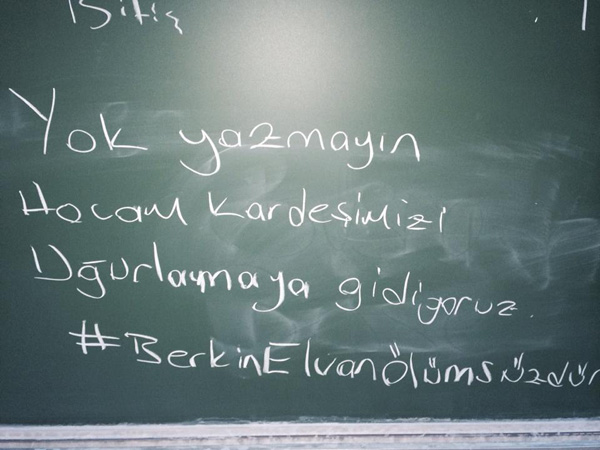 Bitiş
Yok yazmayın
Hocam kardeşimizi
Uğurlamaya gidiyoruz.
#BerkinElvanÖlümsüzdür